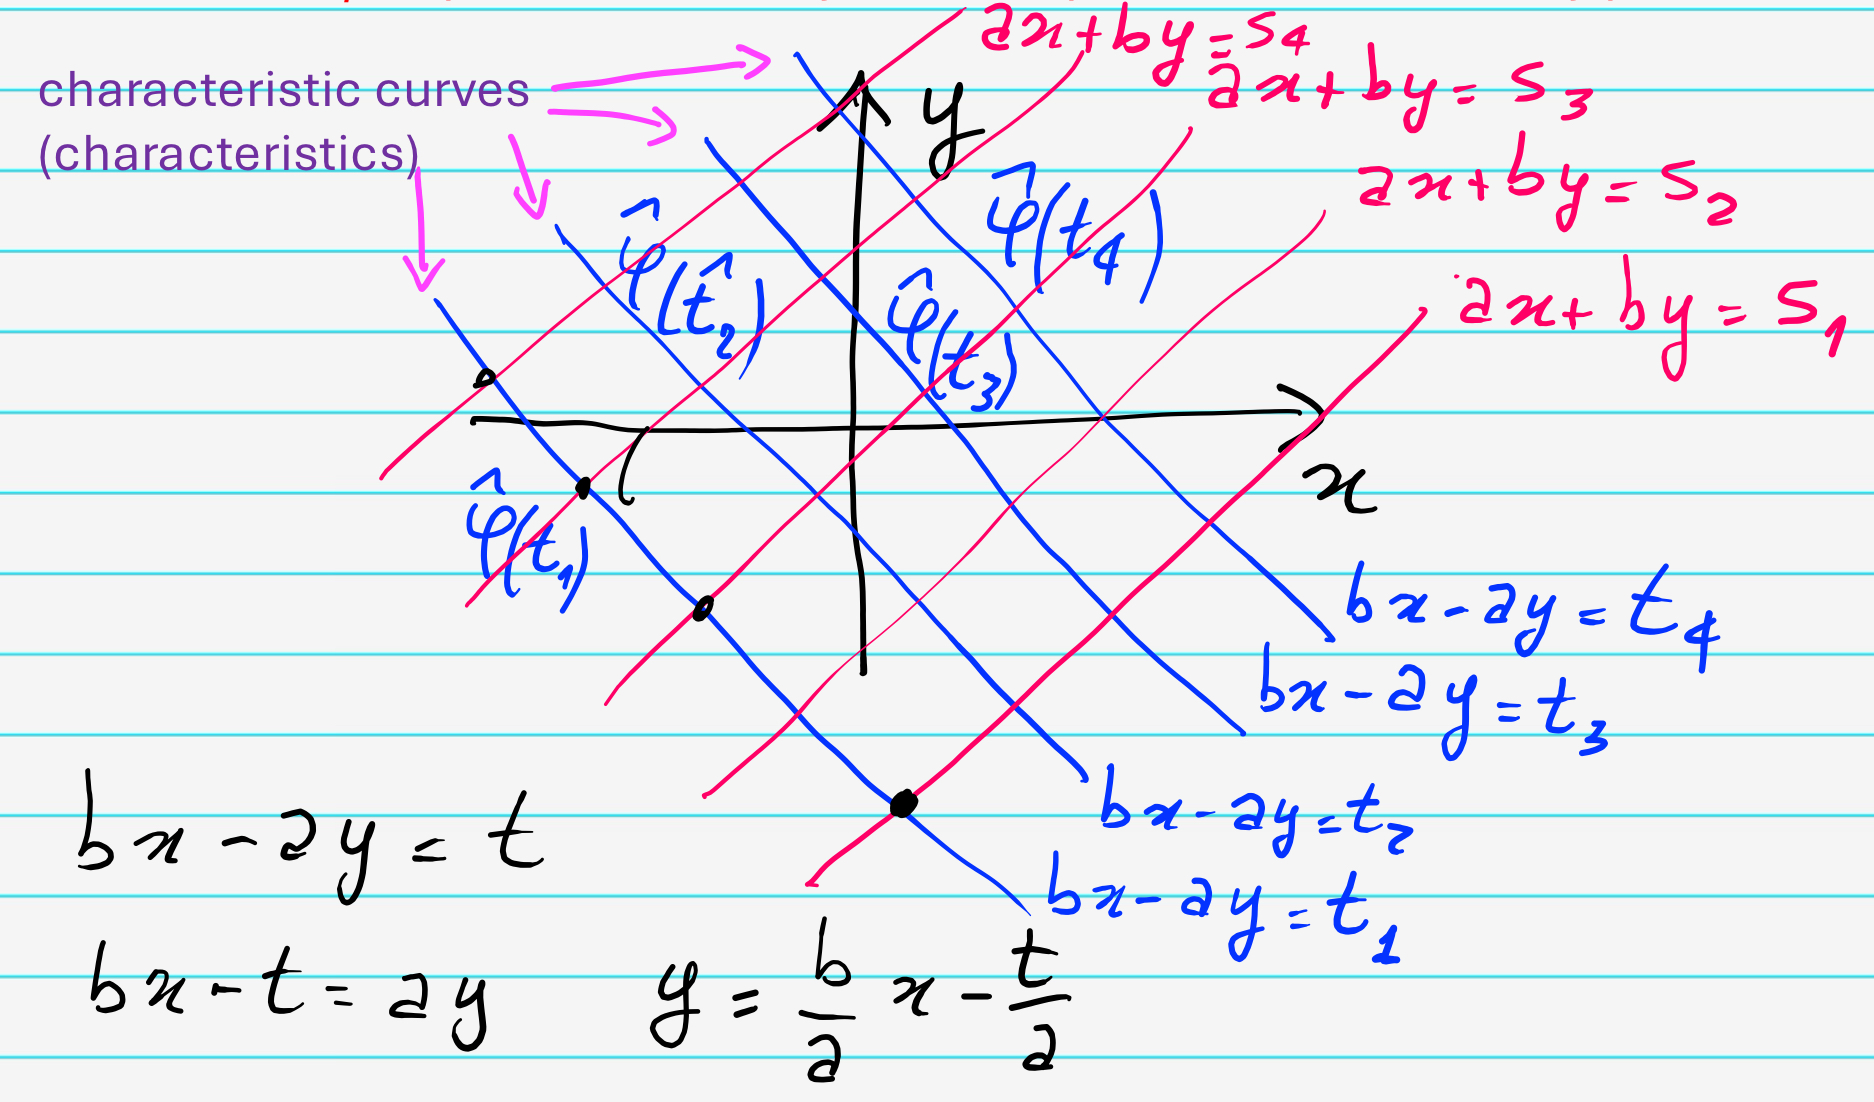 ax+by=s₄
characteristic curves
(characteristics)
y
ax+by=s₃
ax+by=s₂
ax+by=s₁
φ̂(t₄)
φ̂(t̂₂)
φ̂(t₃)
x
φ̂(t₁)
bx-ay=t₄
bx-ay=t₃
bx-ay=t₂
bx-ay=t₁
bx-ay=t
bx-t=ay y=b/a x-t/a